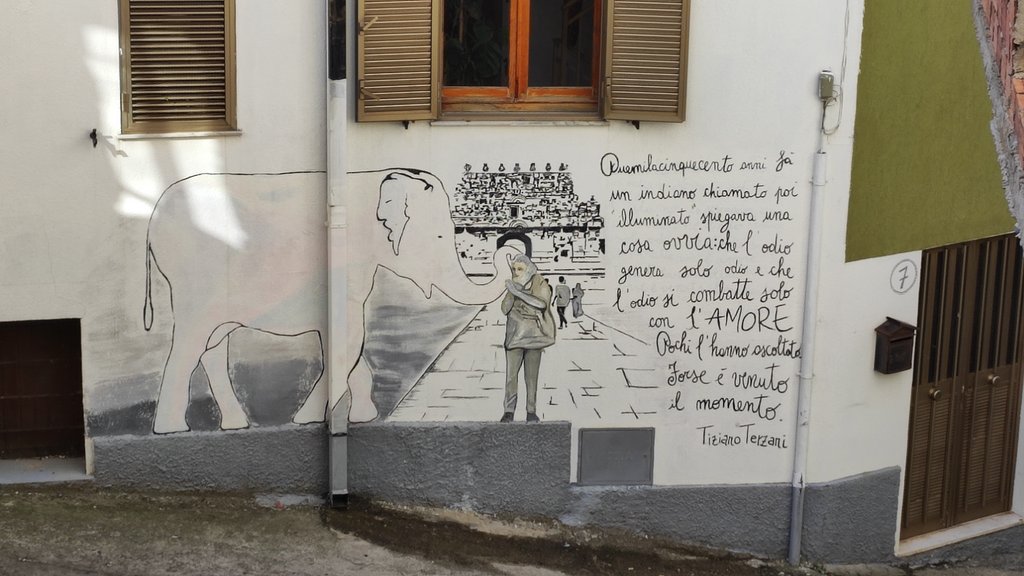 Duemilacinquecento anni fà
un indiano chiamato poi
"illuminato" spiegava una
cosa ovvia: che l'odio
genera solo odio e che
l'odio si combatte solo
con l'AMORE
Pochi l'hanno ascoltato
Forse è venuto
il momento.
Tiziano Terzani
7